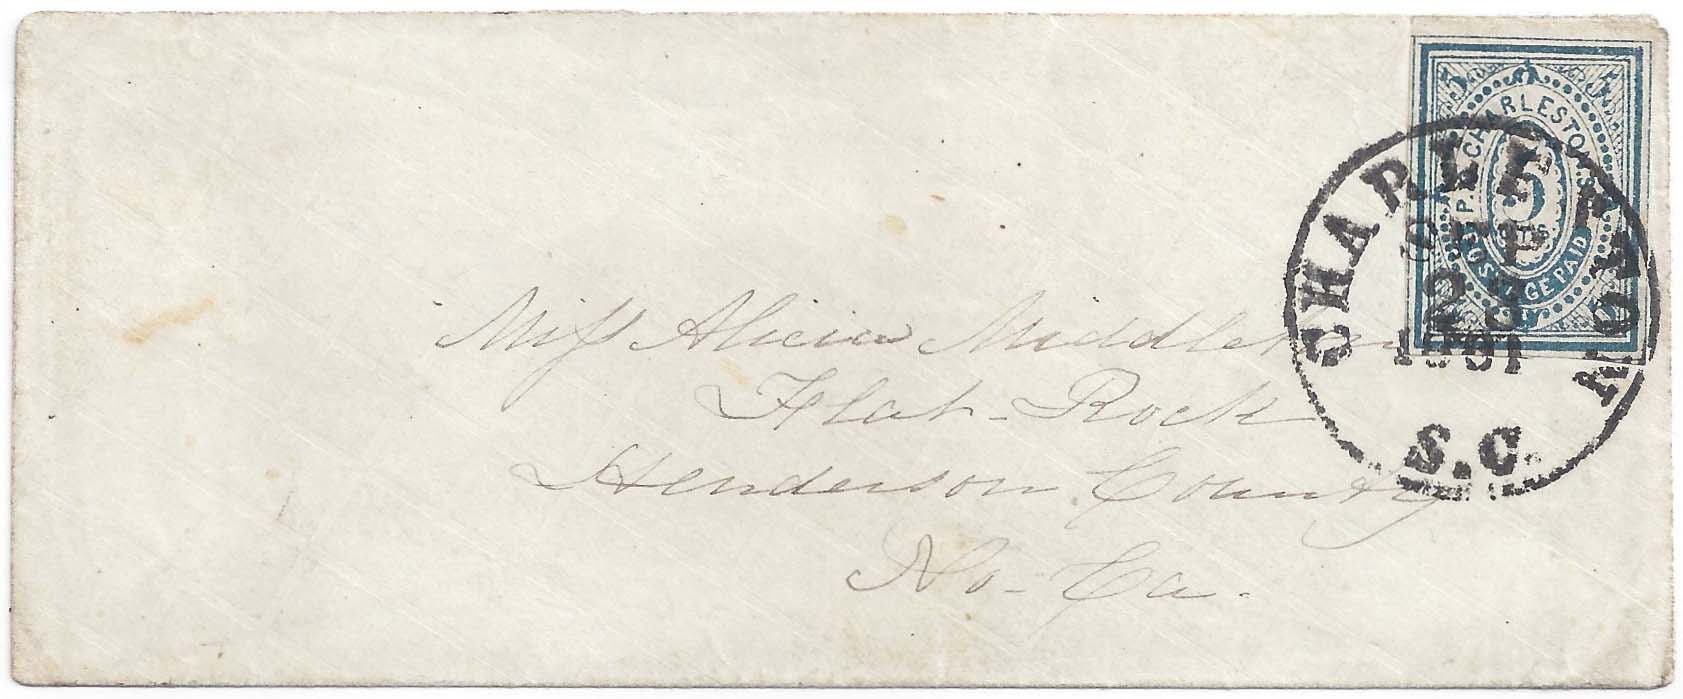 5 5
P.O. CHARLESTON. S.C.
5
CTS
POSTAGE PAID
CHARLESTON
SEP
1861
S.C.
Miss Alicia Middleton
Flat-Rock
Henderson County
No-Ca.